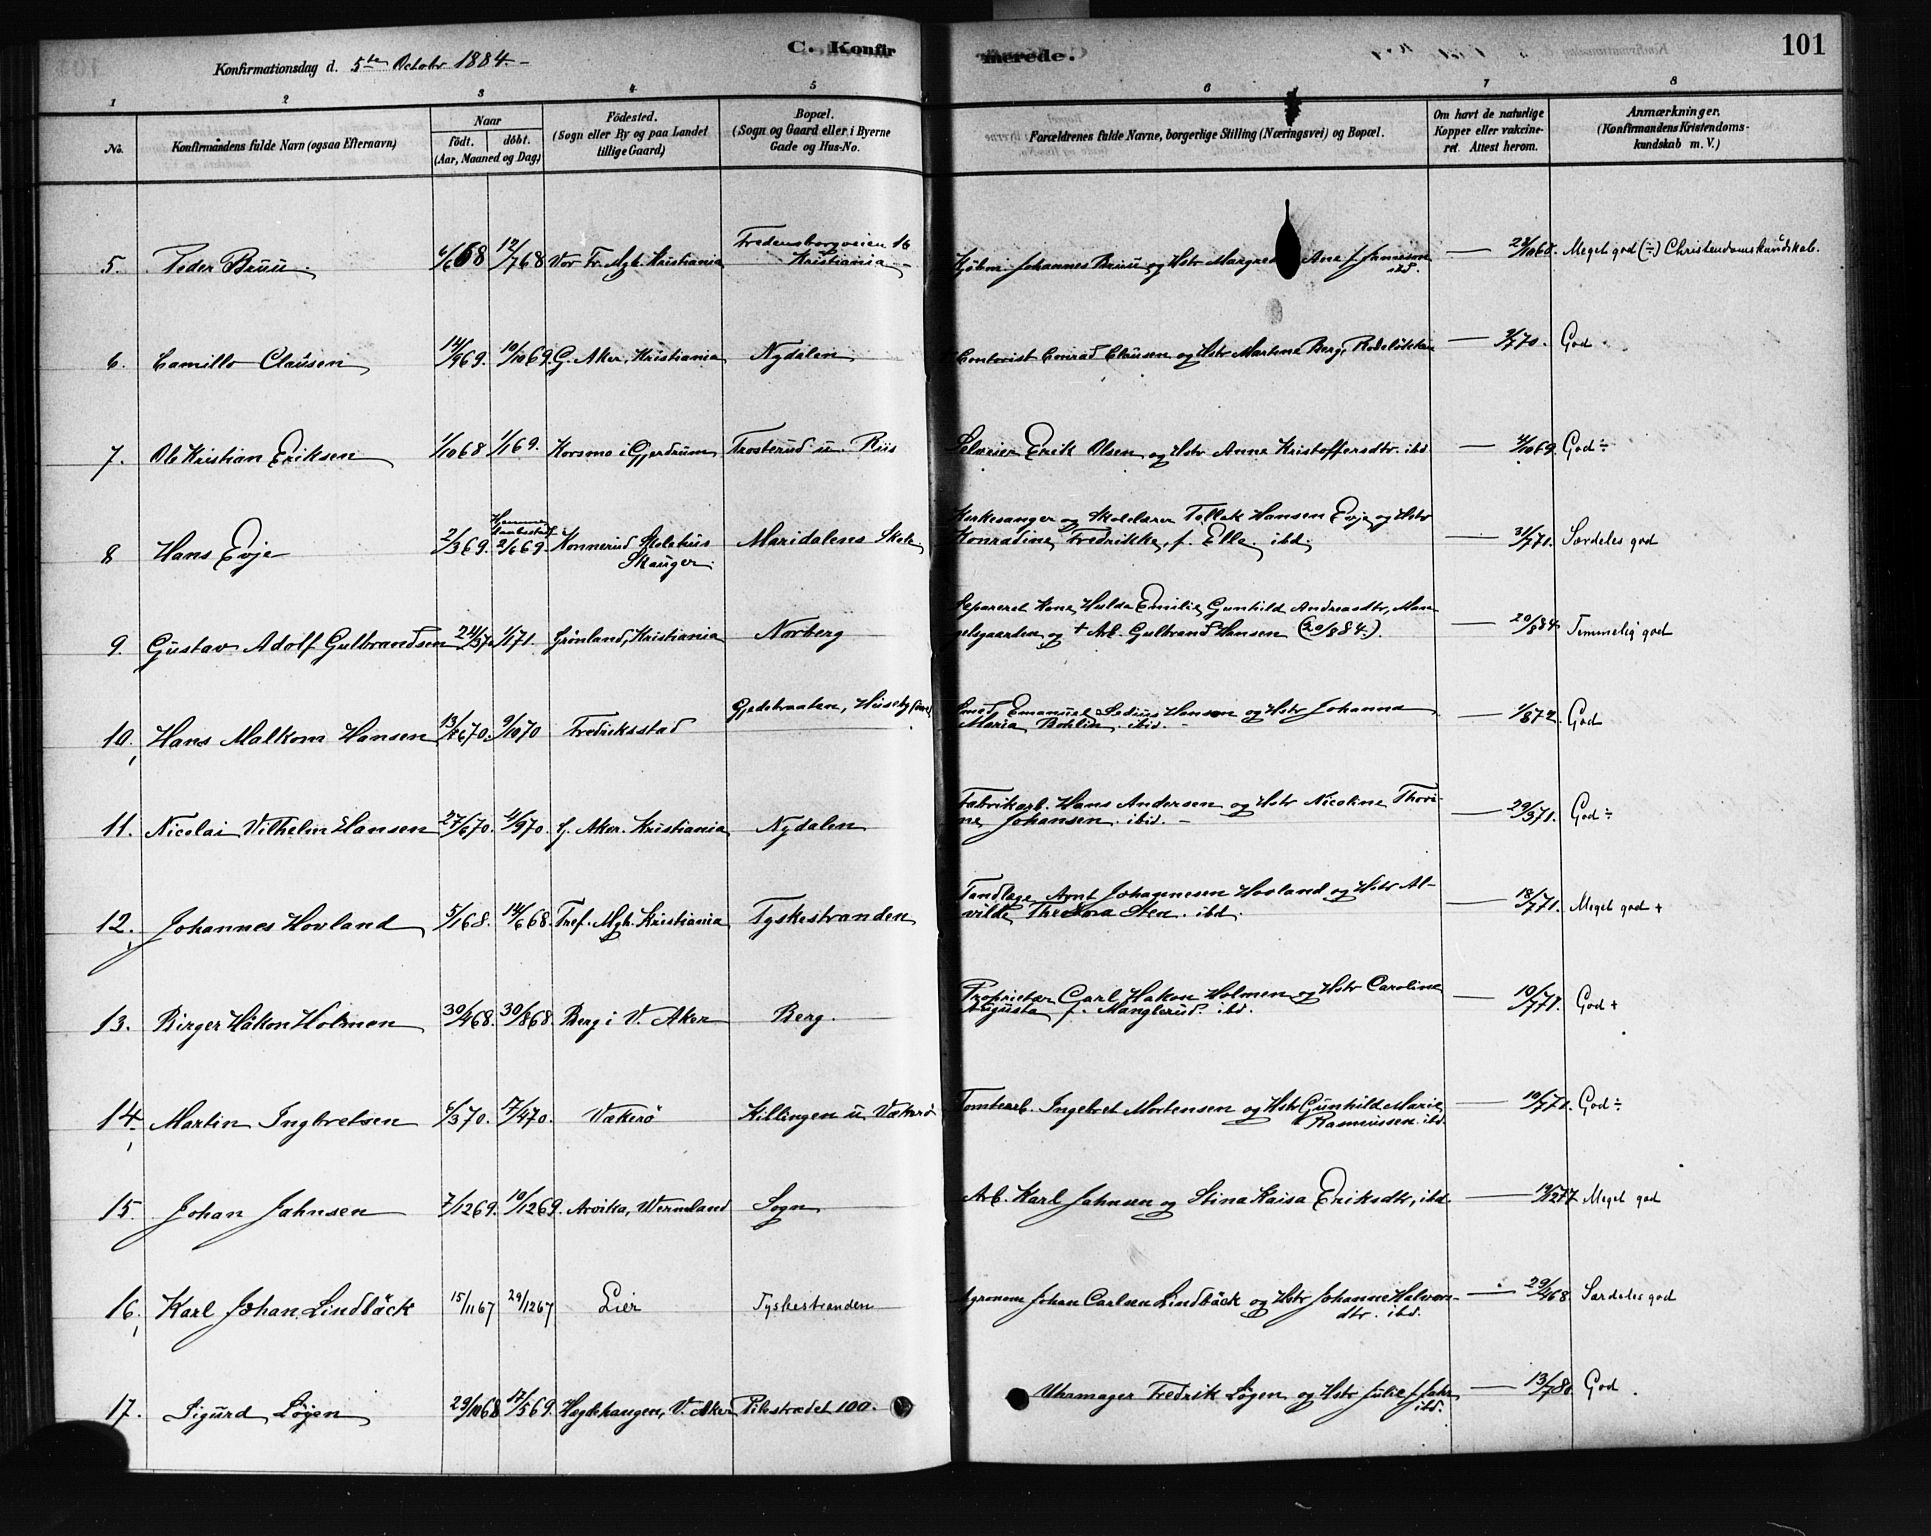 C. Konfirmerede. 101
Konfirmationsdag d. 5te Octobr 1884.-
1 2 3 4 5 6 7 8
No. Konfirmandens fulde Navn (ogsaa Efternavn) Naar født. døbt. (Aar, Maaned og Dag) Fødested. (Sogn eller By og paa Landet tillige Gaard) Bopæl. (Sogn og Gaard eller i Byerne Gade og Hus-No. Forældrenes fulde Navne, borgerlige Stilling (Næringsvei) og Bopæl. Om havt de naturlige Kopper eller vakcineret. Attest herom. Anmærkninger. (Konfirmandens Kristendomskundskab m. V.)
5. Peder Bruu 6/668 12/768 Vor Fr. Mgh. Kristiania Fredensborgveien 16 Kristiania - Johannes Bruu og Hstr Ane ibd. — Meget god (÷) Christendomskundskab.
6. Camillo Clausen 14/969. 10/1069 G. Aker, Kristiania Nydalen Conrad Clausen og Hstr Martine Berg, Rodeløkken — 2/770. God
7. Ole Kristian Eriksen 1/1068 1/169. Korsmo i Gjerdrum Trosterud u. Riis Selveier Erik Olsen og Hstr Anne Kristoffersdtr. ibd — 4/1069. God ÷
8 Hans Evje 2/369. Hjemmedøbt 2/669. Konnerud Skolehus Skauger. Maridalens Skole Kirkesanger og Skolelærer Tellek Hansen Evje og Hstr
Konradine Fredrikke, f. Elle. ibd. — 31/771. Særdeles god
9. Gustav Adolf Gulbrandsen 1/171. Grønland, Kristiania Norberg Separeret Kone Hulda Emilie Gunhild Andreasdtr, Man-
gelsgaarden og + Arb. Gulbrand Hansen (20/884.). — 20/884. Temmelig god
10. Hans Malkom Hansen 13/670. 9/1070 Fredriksstad Gjedebraaten, Huseby Smed Emanuel Hansen og Hstr Johanna
Maria Bohlin. ibid. - — 1/872. God
11. Nicolai Vilhelm Hansen 27/670. 4/970. G. Aker. Kristiania Nydalen Fabrikarb. Hans Andersen og Hstr Nicoline Thori-
ne Johansen. ibid. - — 29/371. God ÷
12. Johannes Hovland 5/168. 14/668. Tref. Mgh. Kristiania Tyskestranden Tandlæge Arnt Johannesen Hovland og Hstr Al-
vilde Theodora Sten. ibd. — 18/771. Meget god +
13. Birger Håkon Holmen 30/468. 30/868. Berg i V. Aker Berg. Proprietær Carl Hakon Holmen og Hstr Caroline
Augusta f. Manglerud. ibd. — 10/771. God +
14. Martin Ingbretsen 6/370. 17/470. Vækerø Killingen u Vækerø Tomtearb. Ingebret Mortensen og Hstr Gunhild Marie
Rasmussen. ibd. — 10/771. God ÷
15. Johan Jahnsen 7/1269. 10/1269. Arvika, Wermland Sogn Arb. Karl Jahnsen og Stina Kaisa Eriksdtr, ibd — Meget god
16. Karl Johan Lindbäck 15/1167 29/1267 Lier Tyskestranden Agronom Johan Carlsen Lindbäck og Hstr Johanne Halvors-
dtr. ibd. — 29/468. Særdeles god
17. Sigurd Løjen 29/1068 17/569. Hægdehaugen, V. Aker Pilestrædet 100. Uhrmager Fredrik Løgen og Hstr Julie f. Jahr
ibd. — 13/780 God.